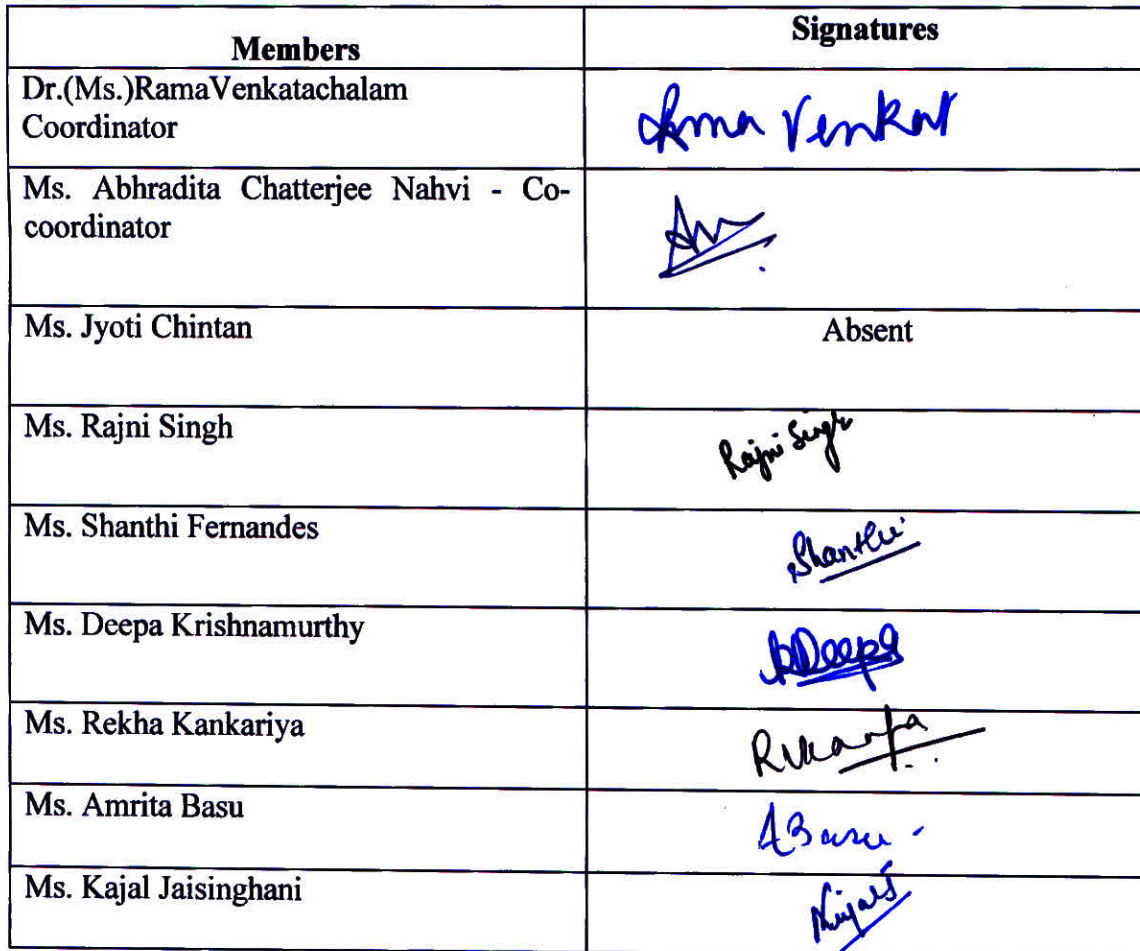 Members Signatures
Dr.(Ms.)RamaVenkatachalam
Coordinator
Rama Venkat
Ms. Abhradita Chatterjee Nahvi - Co-
coordinator
Ms. Jyoti Chintan Absent
Ms. Rajni Singh Rajni Singh
Ms. Shanthi Fernandes Shanthi
Ms. Deepa Krishnamurthy Deepa
Ms. Rekha Kankariya
Ms. Amrita Basu ABasu
Ms. Kajal Jaisinghani